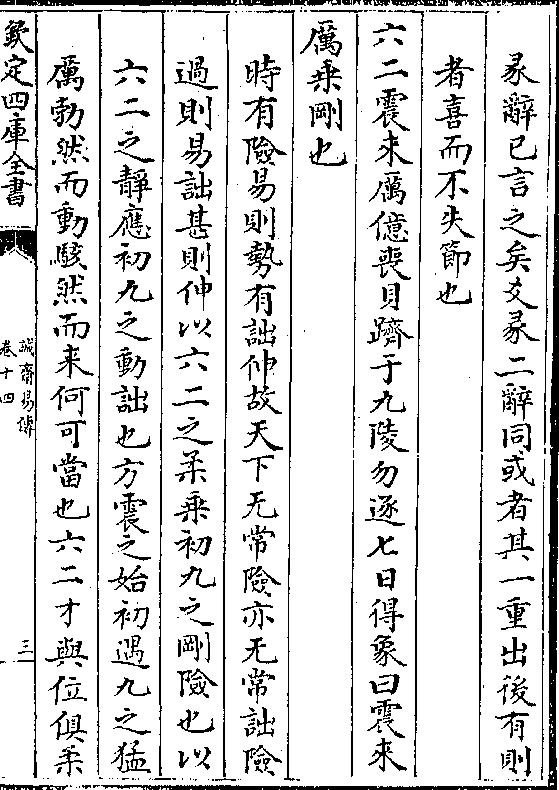 彖辭已言之矣爻彖二辭同或者其一重出後有則
者喜而不失節也
六二震來厲億喪貝躋于九陵勿逐七日得象曰震來
厲乗剛也
時有險易則勢有詘伸故天下无常險亦无常詘險
過則易詘甚則伸以六二之柔乗初九之剛險也以
六二之靜應初九之動詘也方震之始初遇九之猛
厲勃然而動駭然而来何可當也六二才與位俱柔
欽定四庫全書
誠齋易傳
卷十四
三